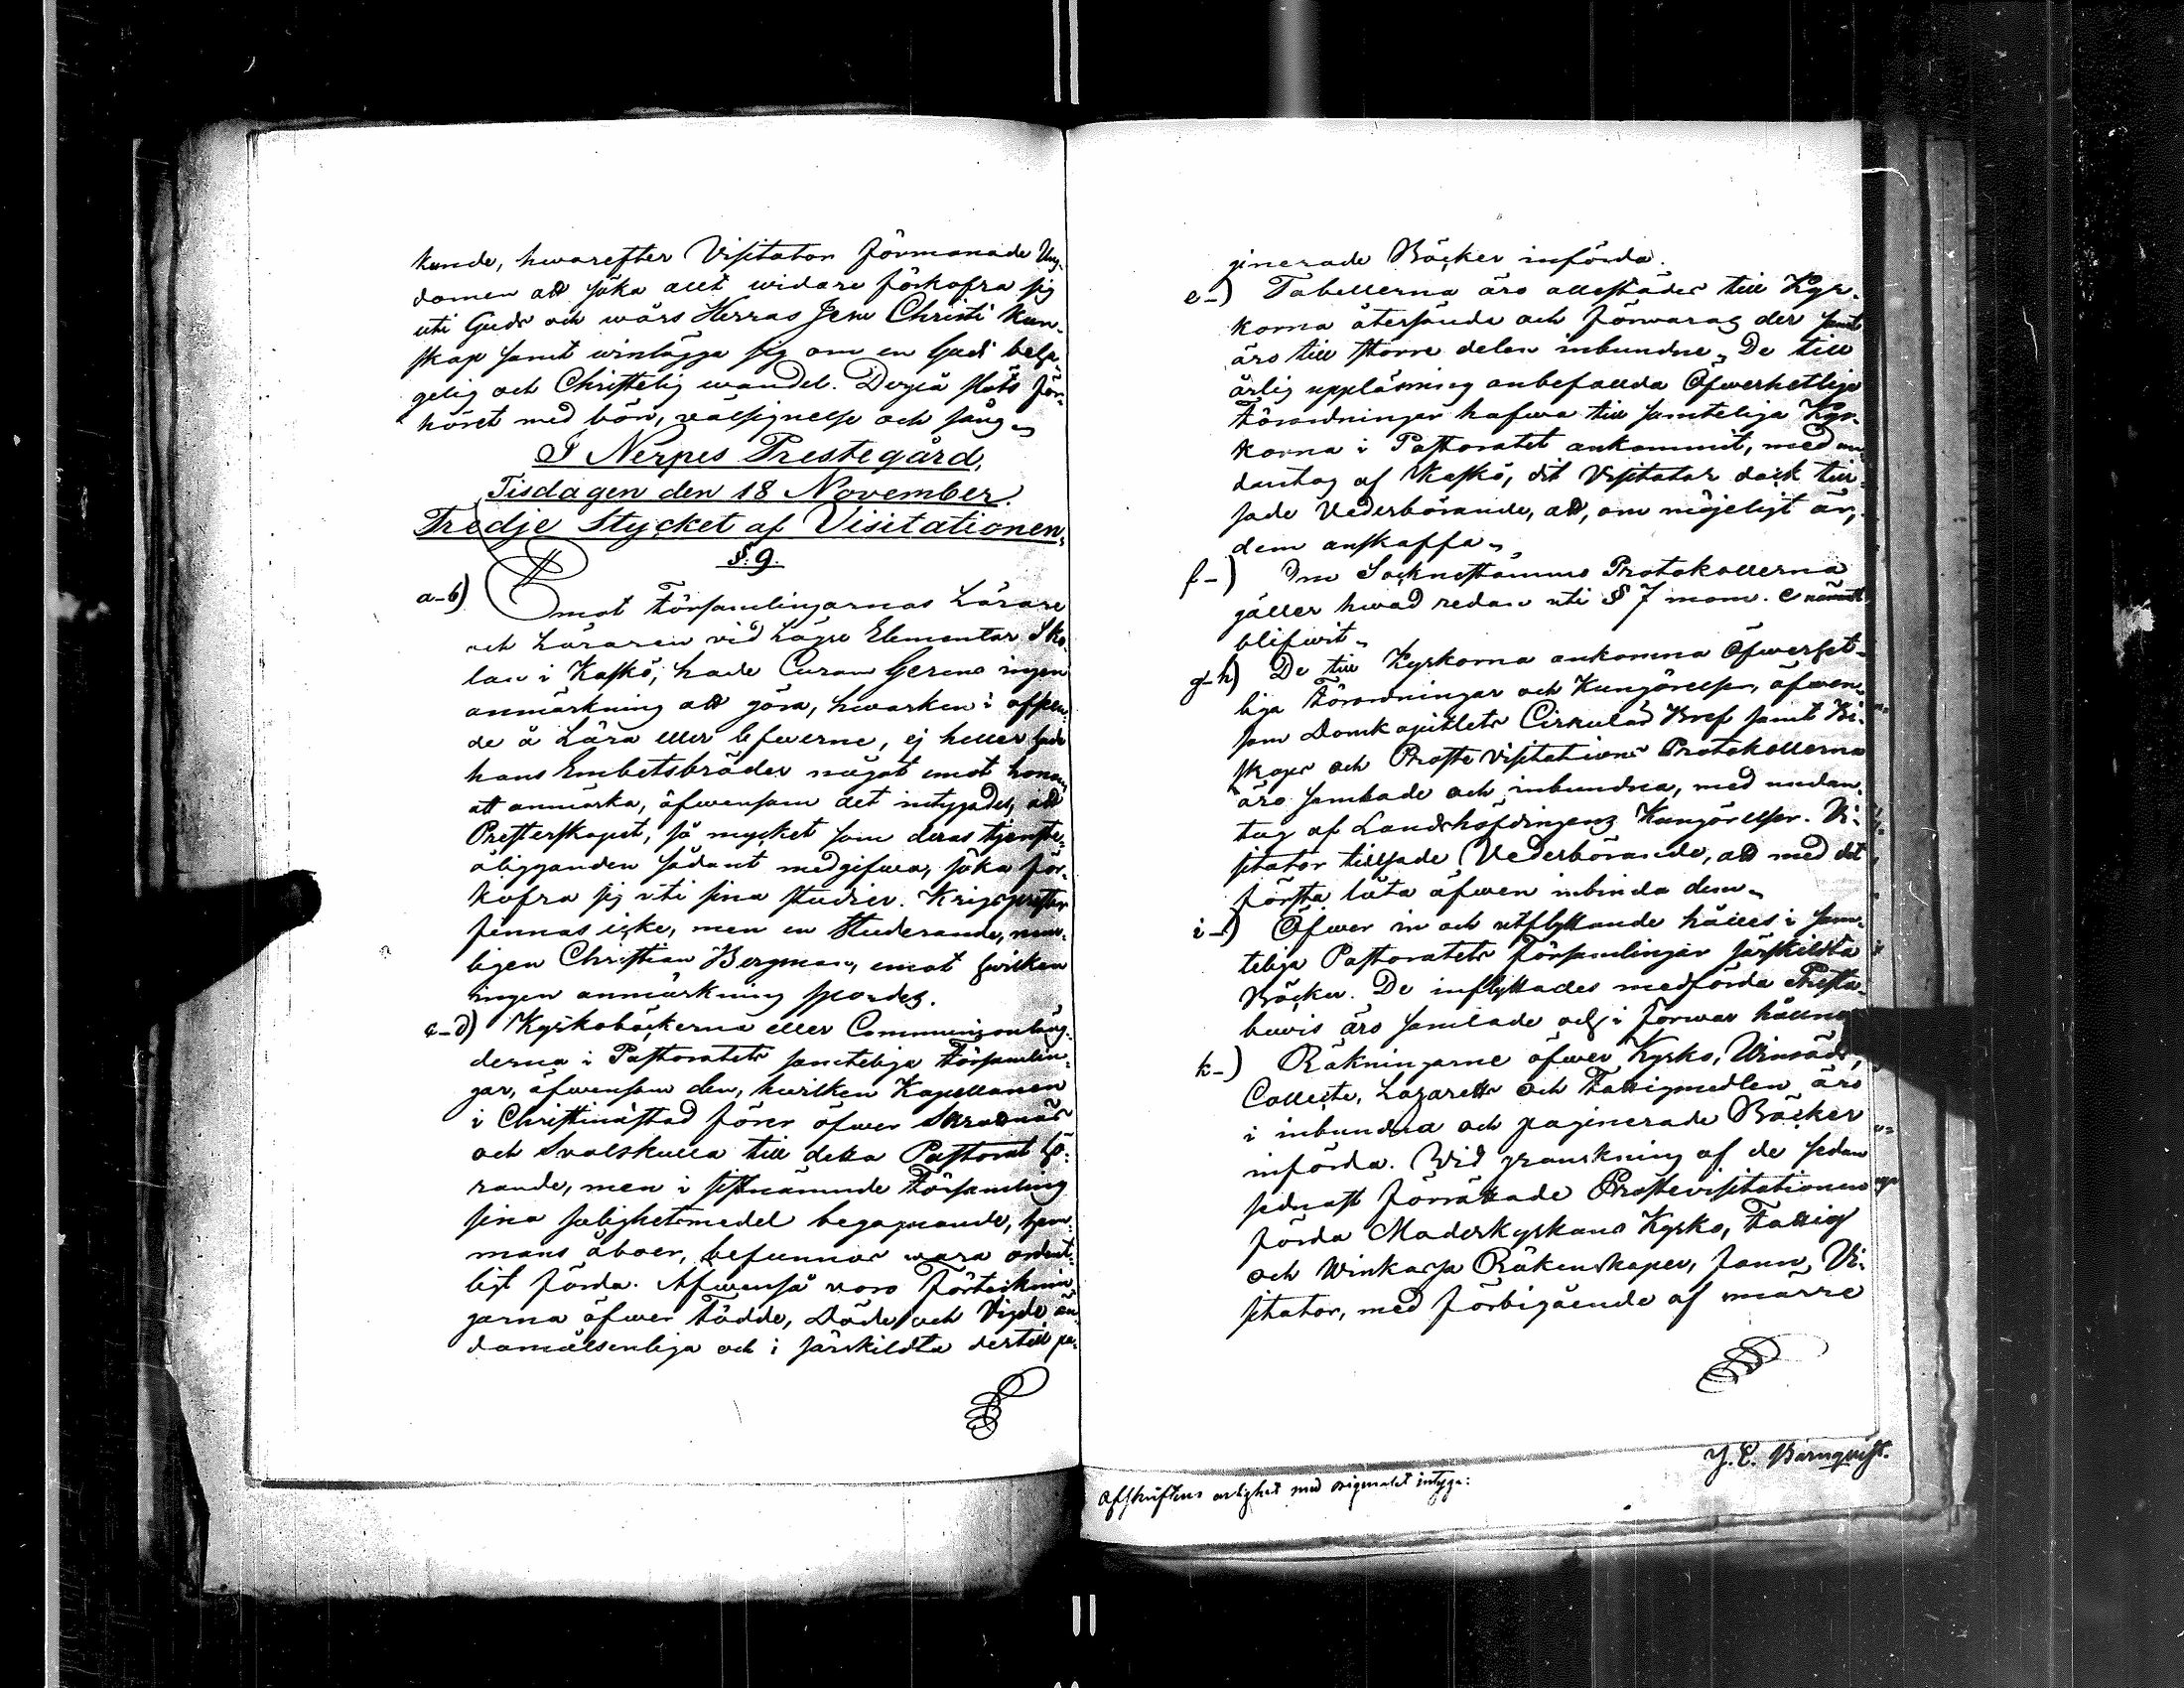 kunde, hwarefter Visitator förmanade Ung-
domen att söka allt widare förkofra sig
uti Guds och wårs Herras Jesu Christi kun-
skap samt winlägga sig om en Gudi beha-
gelig och Christelig wandel. Derpå slöts för-
höret med bön, välsignelse och sång.
I Nerpes Prestegård,
Tisdagen den 18 November.
Tredje Stycket af Visitationen.
§. 9.
a-b) Emot Församlingarnas Lärare
och Läraren vid Lägre Elementar Sko-
lan i Kaskö, hade Curam Gerens ingen
anmärkning att göra, hwarken i afseen-
de å Lära eller lefwerne, ej heller hade
hans Embetsbröder något emot honom
att anmärka, äfwensom det intygades, att
Presterskapet, så mycket som deras tjenste-
åligganden sådant medgifwa, söka för-
kofra sig uti sina studier. Krigsprester
finnas icke, men en Studerande, nem-
ligen Christian Bergman, emot hwilken
ingen anmärkning spordes.
c-d) Kyrkoböckerna eller Communionläng-
derna i Pastoratets samteliga Församlin-
gar, äfwensom den, hwilken Kapellanen
i Christinæstad förer öfwer Skrednäs
och Svalskulla till detta Pastorat hö-
rande, men i sistnämnde Församling
sina salighetsmedel begagnande, hem-
mans åboer, befunnos wara ordent-
ligt förda. Äfwenså woro Förtecknin-
garna öfwer Födde, Döde och Vigde än-
damålsenliga och i särskildta dertill pa-
ginerade Böcker införda.
e-) Tabellerna äro allestädes till Kyr-
korna återsände och förwaras der samt
äro till större delen inbundne. De till
årlig uppläsning anbefallda Öfwerhetliga
Förordningar hafwa till samteliga Kyr-
korna i Pastoratet ankommit, med un-
dantag af Kaskö, dit Visitator dock till-
sade Vederbörande, att, om möjeligt är,
dem anskaffa.
f-) Om Socknestämmo Protokollerna
gäller hwad redan uti § 7 mom. c nämndt
blifwit.
g-h) De till Kyrkorna ankomna Öfwerhet-
liga Förordningar och Kungörelser, äfwen-
som Domkapitlets Cirkulär Bref samt Bi-
skops och Proste Visitations Protokollerna
äro samlade och inbundna, med undan-
tag af Landshöfdingens Kungörelser. Vi-
sitator tillsade Vederbörande, att med det
första låta äfwen inbinda dem.
i-) Öfwer in och utflyttande hålles i sam-
teliga Pastoratets Församlingar särskildta
Böcker. De inflyttades medförda Presta-
bevis äro samlade och i förwar hållna
k-) Räkningarne öfwer Kyrko, Winsäds,
Collecte, Lazaretts och Fattigmedlen äro
i inbundna och paginerade Böcker
införda. Wid granskning af de sedan
sednast förrättade Prostevisitationen
förda Moderkyrkans Kyrko, Fattig
och Winkassa Räkenskaper, fann Vi-
sitator, med förbigående af märre
J. E. Bärnqvist.
Afskriftens riktighet med originalet intyga: